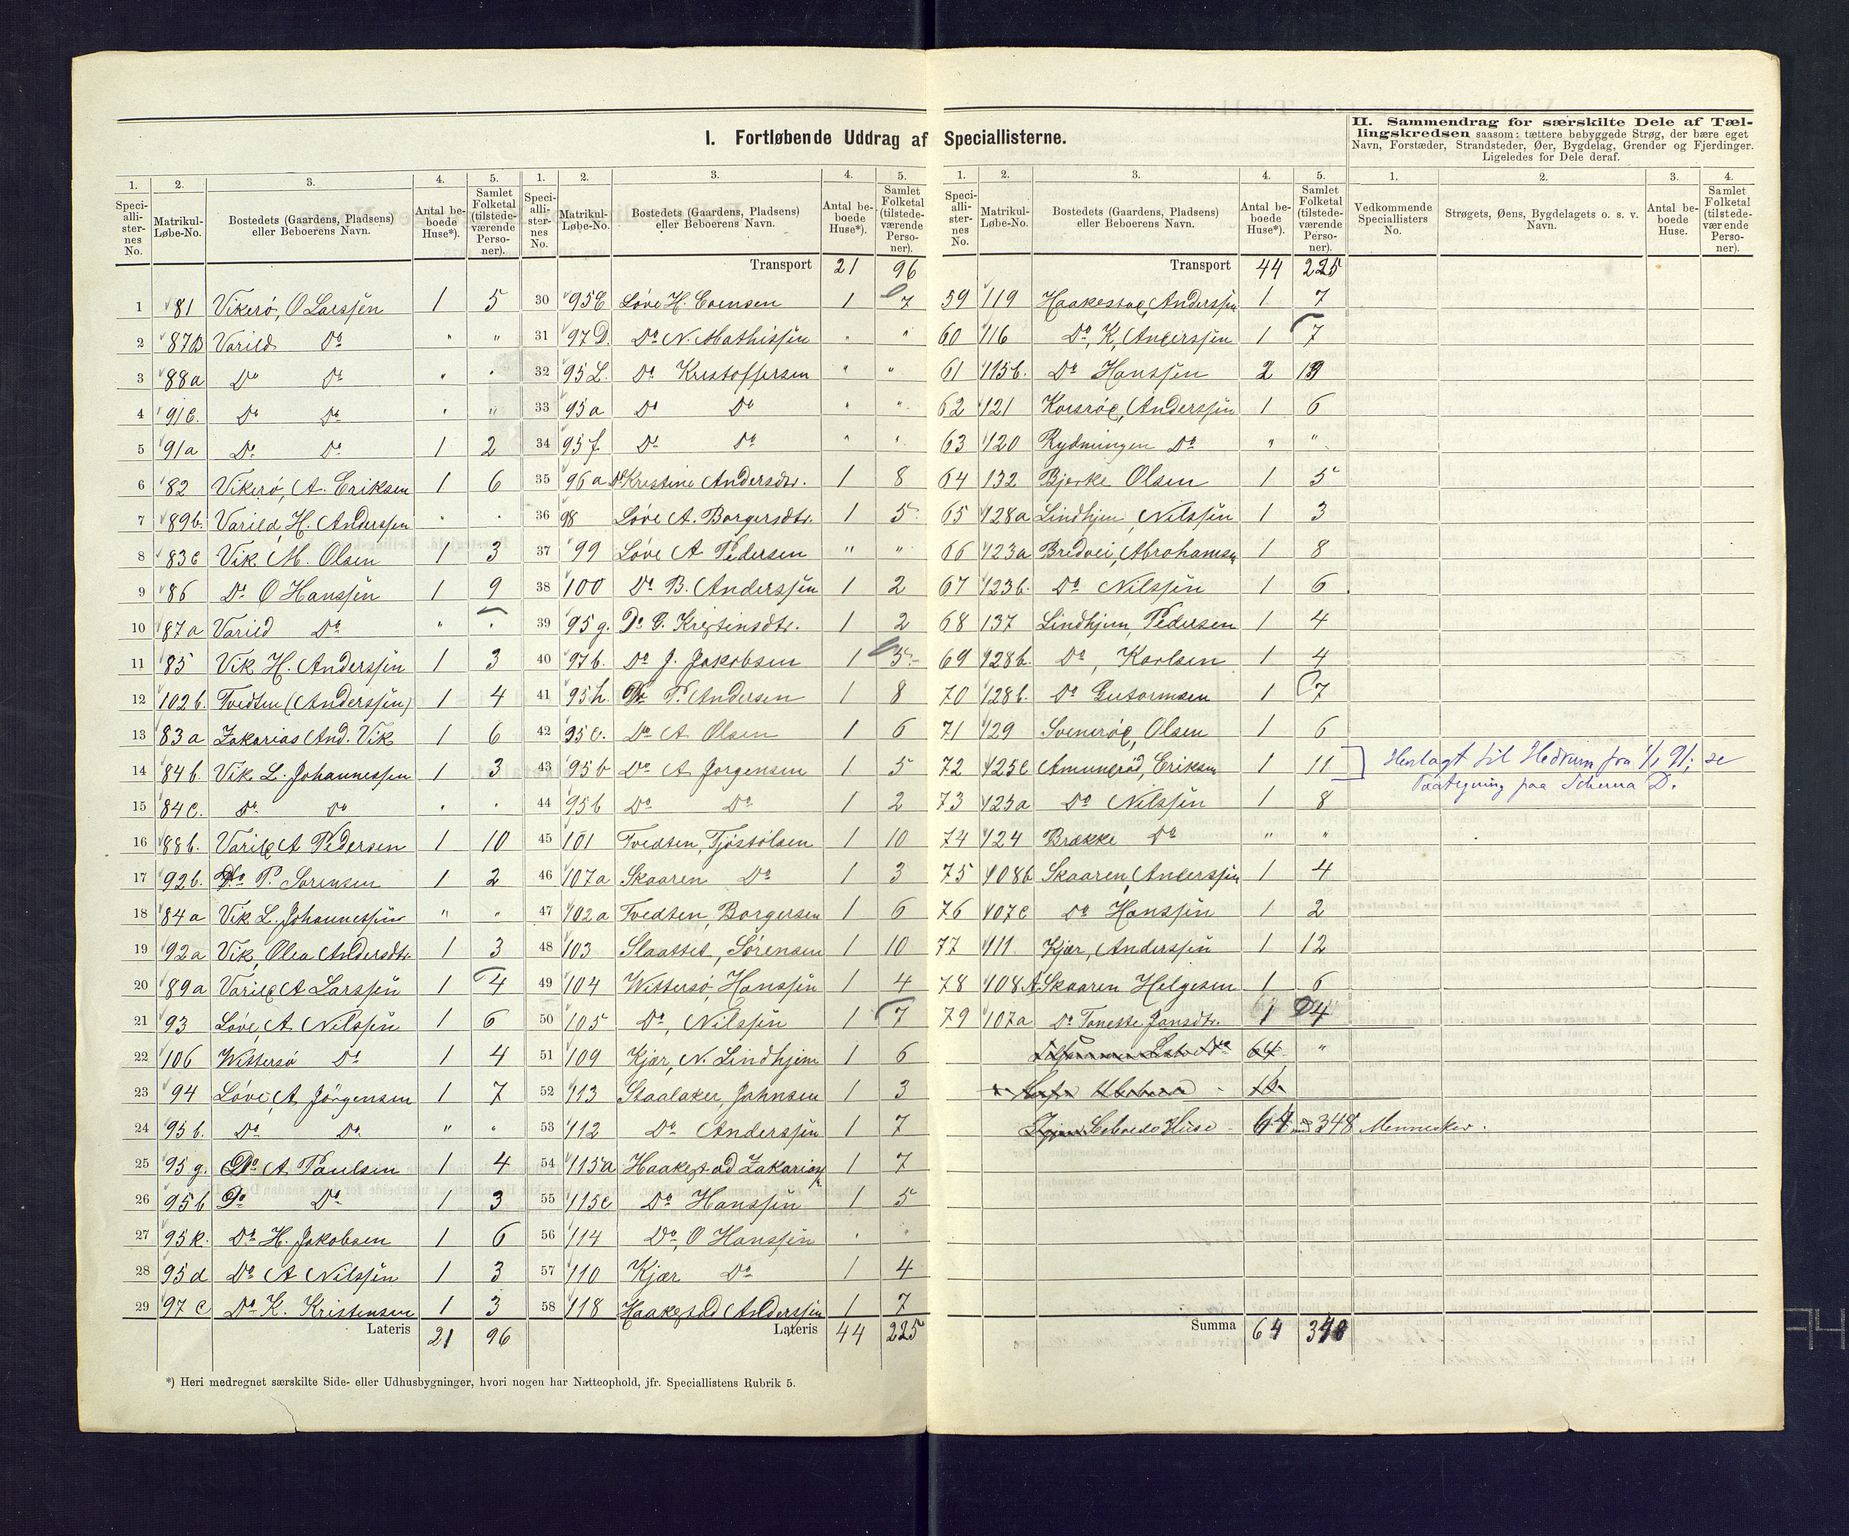 I. Fortløbende Uddrag af Speciallisterne.
II. Sammendrag for særskilte Dele af Tæl-
lingskredsen saasom: tættere bebyggede Strøg, der bære eget
Navn, Forstæder, Strandsteder, Øer, Bygdelag, Grender og Fjerdinger.
Ligeledes for Dele deraf.
1. 2. 3. 4. 5.
Speciallisternes No. Matrikul-Løbe-No. Bostedets (Gaardens, Pladsens) eller Beboerens Navn. Antal beboede Huse*). Samlet Folketal (tilstedeværende Personer).
1 81 Vikerö, O Larssen 1 5
2 87B Varild Do " "
3 88a Do Do " "
4 91C. Do Do " "
5 91a Do Do 1 2
6 82 Vikerö, A. Eriksen 1 6
7 89b. Varild, H. Anderssen " "
8 83c Vik M. Olsen 1 3
9 86 Do O Hanssen 1 9
10 87a Varild Do " "
11 85 Vik H. Anderssen 1 3
12 102b. Tvedten (Anderssen) 1 4
13 83a Zakarias And. Vik 1 6
14 84b. Vik L. Johannessen 1 3
15 84c. Do Do " "
16 88b. Varild A Pedersen 1 10
17 92b. Do P. Sorensen 1 2
18 84a Vik L. Johannessen " "
19 92a Vik, Olea Andersdtr 1 3
20 89a Varild A Larssen 1 4
21 93 Løve, A Nilssen 1 6
22 106 Wittersö Do 1 4
23 94 Løve, A Jörgensen 1 7
24 95b. Do Do " "
25 95g. Do A Paulsen 1 4
26 95b Do Do 1 3
27 95k. Do H. Jakobsen 1 6
28 95d Do A Nilssen 1 3
29 97c Do K. Kristensen 1 3
Lateris 21 96
*) Heri medregnet særskilte Side- eller Udhusbygninger, hvori nogen har Natteophold, jfr. Speciallistens Rubrik 5.
1. 2. 3. 4. 5.
Speciallisternes No. Matrikul-Løbe-No. Bostedets (Gaardens, Pladsens) eller Beboerens Navn. Antal beboede Huse*). Samlet Folketal (tilstedeværende Personer).
Transport 21 96
30 95C Løve H. Evensen 1 7
31 97D. Do N. Mathissen " "
32 95L. Do Kristoffersen " "
33 95a Do Do " "
34 95f. Do Do " "
35 96a Do Kristine Andersdtr. 1 8
36 98 Løve A. Borgersdtr. 1 5
37 99 Løve A Pedersen " "
38 100 Do B. Anderssen 1 2
39 95g. Do G. Kristinsdtr. 1 2
40 97b. Do J. Jakobsen 1 5
41 95h. Do P. Andersen 1 8
42 95c. Do A Olsen 1 6
43 95b Do A Jorgensen 1 5
44 95b Do Do 1 2
45 101 Tvedten, Tjöstolsen 1 10
46 107a Skaaren Do 1 3
47 102a Tvedten, Borgersen 1 6
48 103 Slaattet, Sørensen 1 10
49 104 Wittersö, Hanssen 1 4
50 105 Do, Nilssen 1 7
51 109 Kjær, N. Lindhjem 1 6
52 113 Staalaker, Johnsen 1 3
53 112 Do Anderssen 1 7
54 115a Haakestad Zakarias 1 7
55 115c Do Hanssen 1 5
56 114 Do, O Hanssen " "
57 110 Kjær Do 1 4
58 118 Haakestad Anderssen 1 7
Lateris 44 225
1. 2. 3. 4. 5.
Speciallisternes No. Matrikul-Løbe-No. Bostedets (Gaardens, Pladsens) eller Beboerens Navn. Antal beboede Huse*). Samlet Folketal (tilstedeværende Personer).
Transport 44 225
59 119 Haakestad, Anderssen 1 7
60 116 Do, K, Anderssen 1 7
61 115b. Do Hanssen 2 13
62 121 Korsröd, Anderssen 1 6
63 120 Rydningen Do " "
64 132 Bjerke Olsen 1 5
65 128a Lindhjem, Nilssen 1 3
66 123a Bredvei, Abrahamsen 1 8
67 123b. Do Nilssen 1 6
68 137 Lindhjem, Pedersen 1 4
69 128b. Do, Karlsen 1 4
70 128b. Do Gutormsen 1 7
71 129 Sveneröd, Olsen 1 6
72 125c Amundröd, Eriksen 1 11
73 123a Do Nilssen 1 8
74 124 Brække Do " "
75 108b Skaaren, Anderssen 1 4
76 107c Do Hanssen 1 2
77 111 Kjær, Anderssen 1 12
78 108A Skaaren Helgesen 1 6
79 107a Do Tonette Jansdtr. 1 4
64 "
Igjen beboede Huse 64 348 Mennesker.
Summa 64 348
1. 2. 3. 4.
Vedkommende Speciallisters No. Strøgets, Øens, Bygdelagets o. s. v. Navn. Antal beboede Huse. Samlet Folketal (tilstedeværende Personer).
Henlagt til Hedrum fra 1/1 91; se
Paategning paa Schema D.